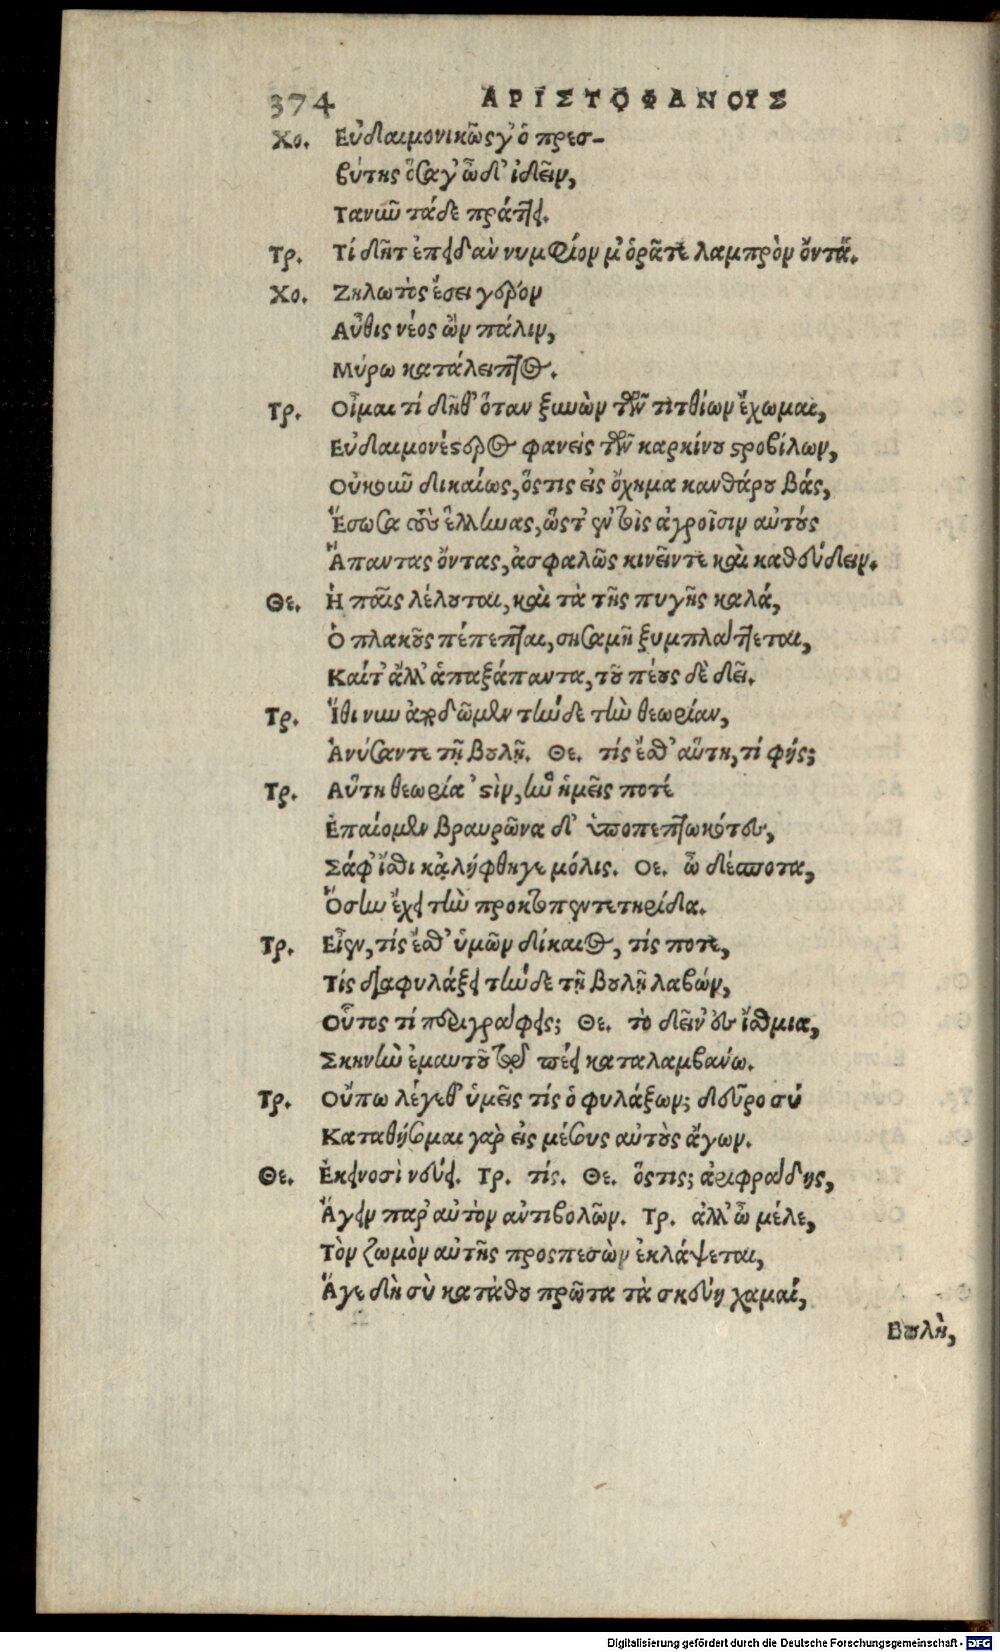 374 ΑΡΙΣΤΟΦΑΝΟΥΣ
Χο. Εὐδαιμονικῶς γ' ὁ πρεσ-
βύτης ὅσα γ' ὧδ' ἰδεῖν,
Τανῦν τάδε πράττει.
Τρ. Τί δῆτ' ἐπειδὰν νυμφίον μ' ὁρᾶτε λαμπρὸν ὄντα.
Χο. Ζηλωτὸς ἔσει γέρον
Αὖθις νέος ὢν πάλιν,
Μύρω κατάλειπτος.
Τρ. Οἶμαι τί δῆθ' ὅταν ξυνὼν τῶν τιτθίων ἔχωμαι,
Εὐδαιμονέστερος φανεῖς τῶν καρκίνου στροβίλων,
Οὐκοῦν δικαίως, ὅστις εἰς ὄχημα κανθάρου βάς,
Ἔσωσα τοὺς ἕλληνας, ὥστ' ἐν τοῖς ἀγροῖσιν αὐτούς
Ἅπαντας ὄντας, ἀσφαλῶς κινεῖν τε καὶ καθεύδειν.
Θε. Ἡ παῖς λέλουται, καὶ τὰ τῆς πυγῆς καλά,
Ὁ πλακοῦς πέπεπται, σησαμῆ ξυμπλάττεται,
Καί τ' ἄλλ' ἁπαξάπαντα, τοῦ πέους δὲ δεῖ.
Τρ. Ἴθι νυν ἀποδῶμεν τήνδε τὴν θεωρίαν,
Ἀνύσαντε τῇ βουλῇ. Θε. τίς ἔσθ' αὕτη, τί φής;
Τρ. Αὕτη θεωρία 'στὶν, ἣν ἡμεῖς ποτέ
Ἐπαίομεν βραυρῶνα δ' ὑποπεπτωκότες,
Σάφ' ἴσθι κἀλήφθη γε μόλις. Θε. ὦ δέσποτα,
Ὅσην ἔχει τὴν προκτοπεντετηρίδα.
Τρ. Εἶεν, τίς ἔσθ' ὑμῶν δίκαιος, τίς ποτε,
Τίς διαφυλάξει τήνδε τῇ βουλῇ λαβών,
Οὗτος τί περιγράφεις; Θε. τὸ δεῖν' ἐς ἴσθμια,
Σκηνὴν ἐμαυτοῦ τῷ πέει καταλαμβάνω.
Τρ. Οὔπω λέγεθ' ὑμεῖς τίς ὁ φυλάξων; δεῦρο σύ
Καταθήσομαι γὰρ εἰς μέσους αὐτὸς ἄγων.
Θε. Ἐκεινοσὶ νεύει. Τρ. τίς. Θε. ὅστις; ἀριφράδης,
Ἄγειν παρ' αὐτὸν ἀντιβολῶν. Τρ. ἀλλ' ὦ μέλε,
Τὸν ζωμὸν αὐτῆς προσπεσὼν ἐκλάψεται,
Ἄγε δὴ σὺ κατάθου πρῶτα τὰ σκεύη χαμαί,
Βουλὴ,
Digitalisierung gefördert durch die Deutsche Forschungsgemeinschaft - DFG